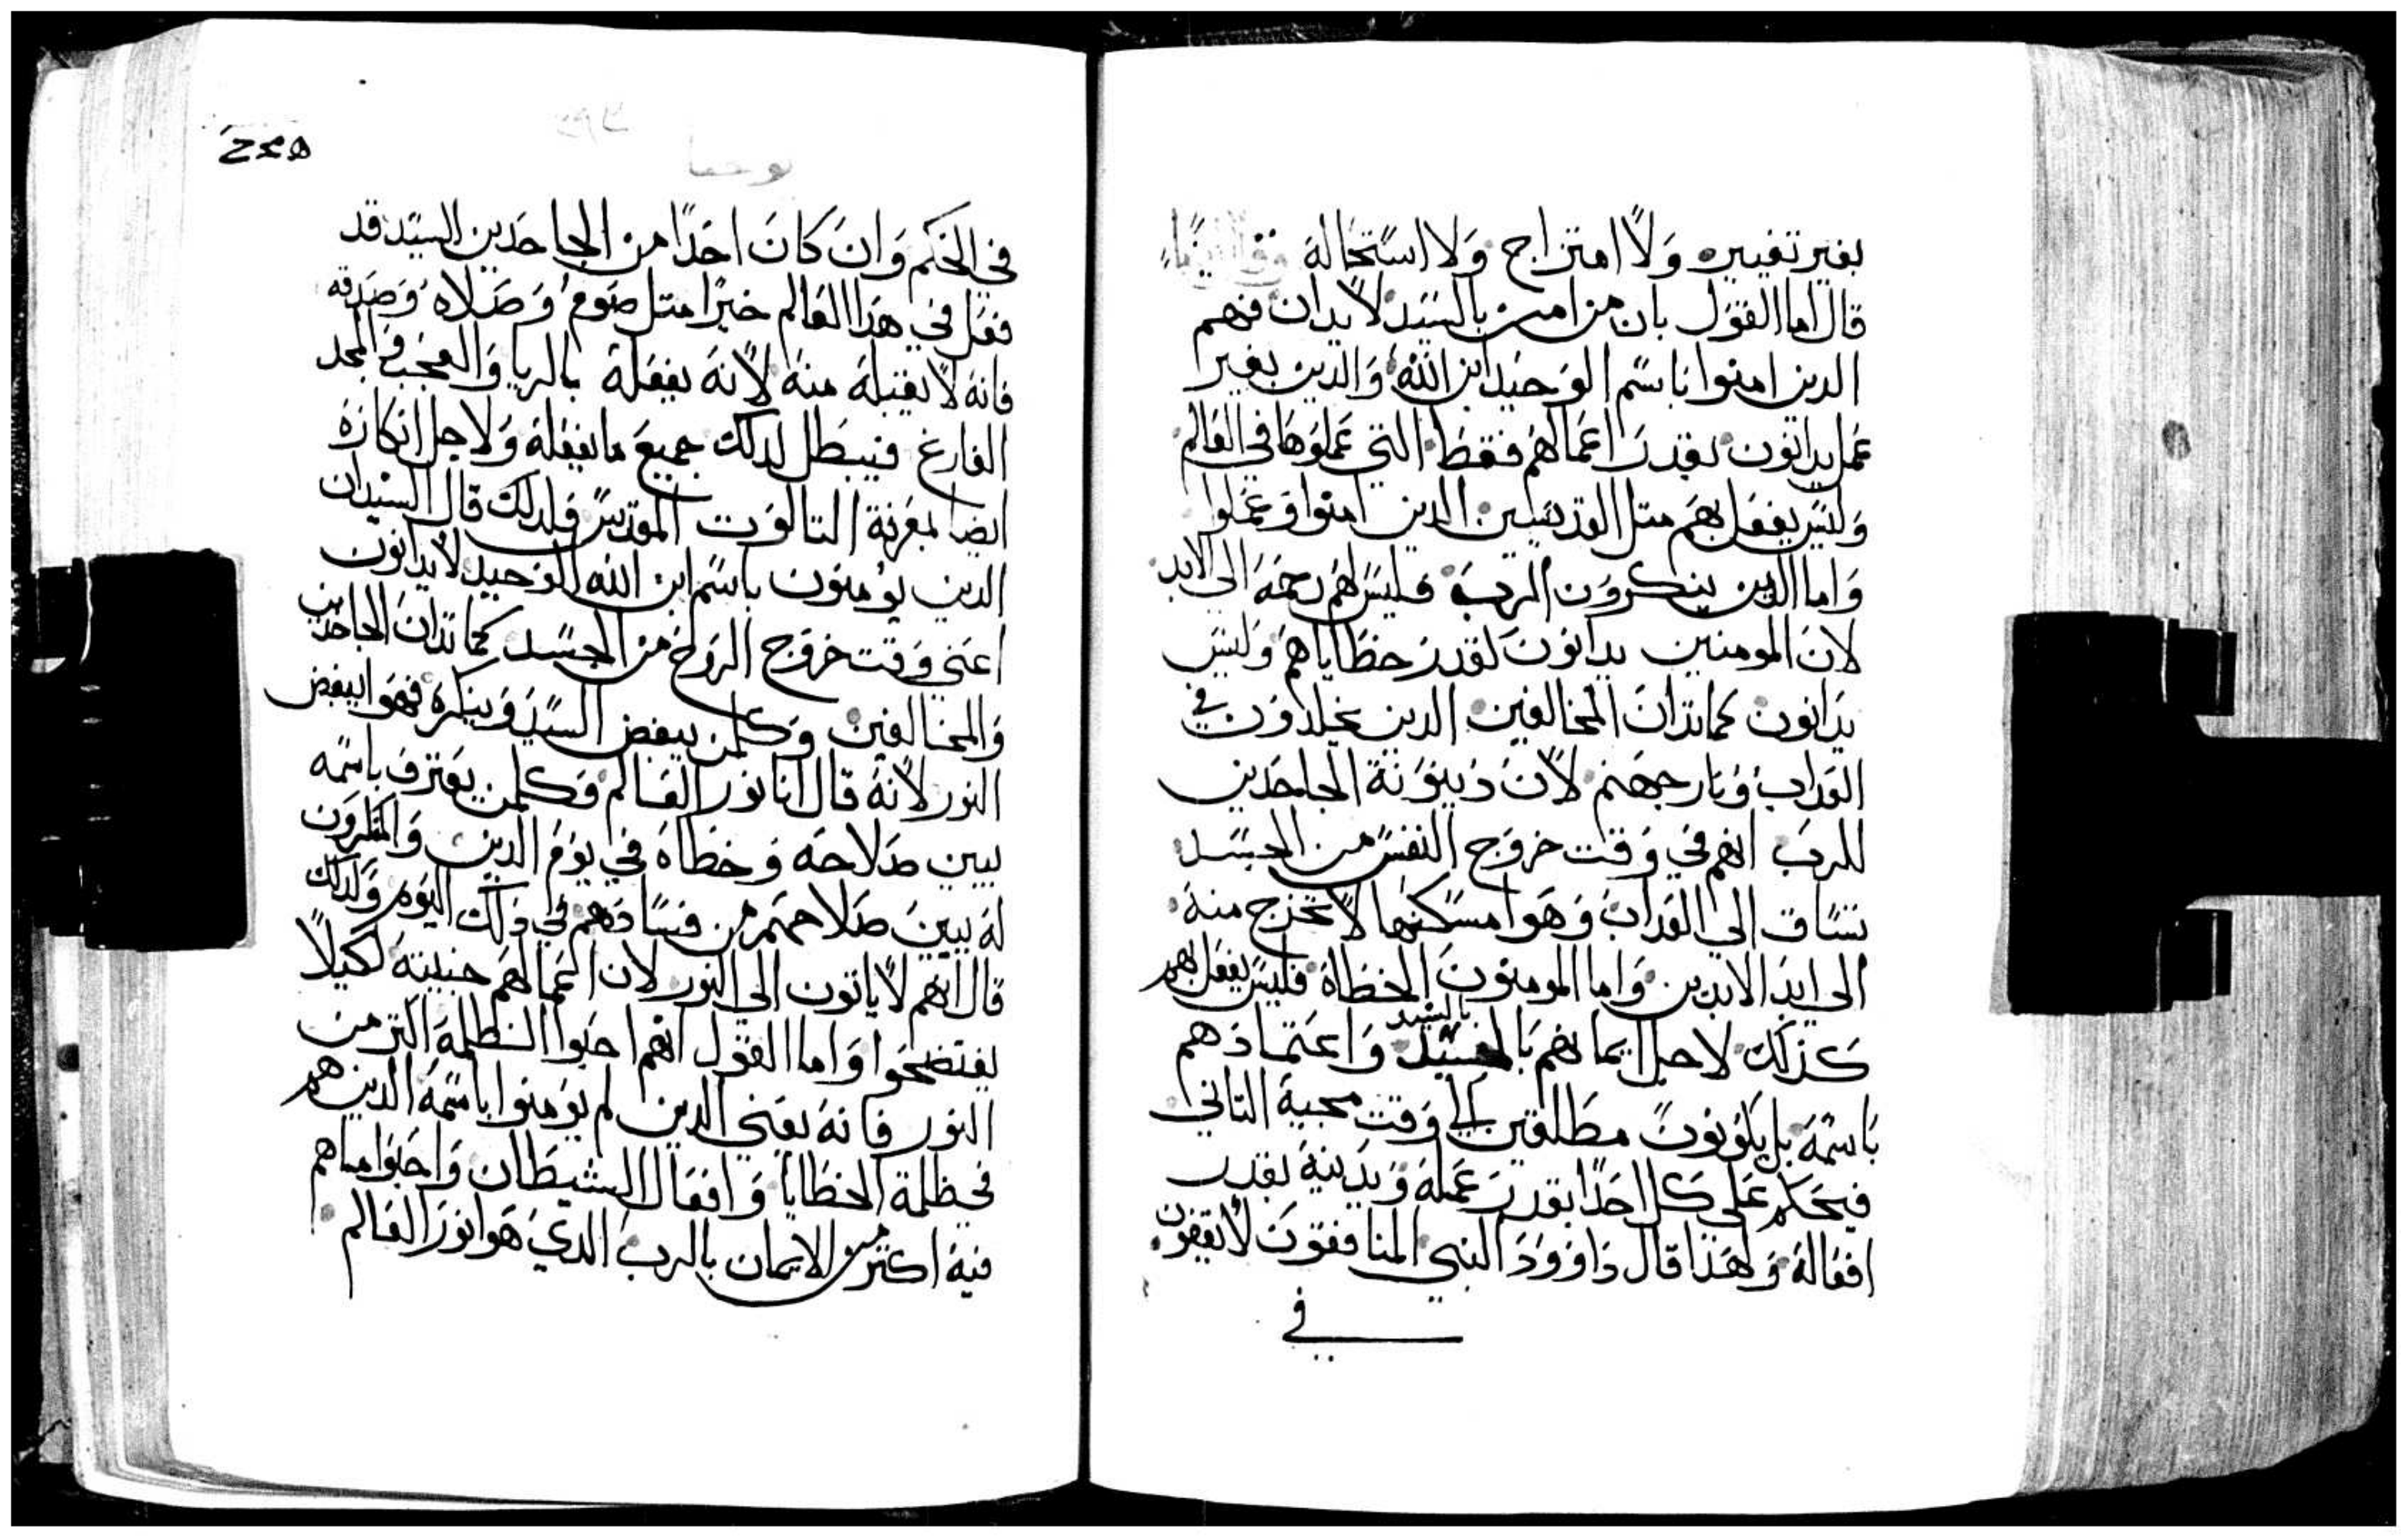 بغير تغيير ولا امتزاج ولا استحاله
قال اما القول بان من امن بالسيد لا يدان فهم
الدين امنوا باسم الوحيد ابن الله والدين بغير
عمل يدانون بقدر اعمالهم فقط التي عملوها في العالم
وليس يفعل بهم متل القديسين الدين امنوا وعملوا
واما الدين ينكرون الرب فليس لهم رحمه الى الابد
لان المومنين يدانون لقدر خطاياهم وليس
يدانون كما تدان المخالفين الدين يخلدون في
العداب ونار جهنم لان دينونة الجاحدين
للرب انهم في وقت خروج النفس من الجسد
تساق الي العداب وهوا مسكنها لا تخرج منه
الى ابد الابدين واما المومنون الخطاة فليس يفعل بهم
كذلك لاجل ايمانهم بالسيد واعتمادهم
باسمه بل يكونون مطلقين الي وقت مجيه التاني
فيحكم علي كل احدا بقدر عمله ويدينه بقدر
افعاله ولهذا قال داوود النبي المنافقون لا يقفون
في
يوحنا
في الحكم وان كان احدا من الجاحدين السيد قد
فعل في هدا العالم خيرا متل صوم وصلاه وصدقه
فانه لا يقبله منه لانه يفعله بالريا والعجب والمجد
الفارغ فيبطل لدلك جميع ما يفعله ولاجل انكاره
ايضا لمعرفة التالوت المقدس فلدلك قال السيد ان
الدين يومنون باسم ابن الله الوحيد لا يدانون
اعني وقت خروج الروح من الجسد كما تدان الجاحدين
والمخالفين وكلمن يبغض السيد وينكره فهوا يبغض
النور لانه قال انا نور العالم وكلمن يعترف باسمه
يبين صلاحه وخطاه في يوم الدين والمنكرون
له يبين صلاحهم من فسادهم في دلك اليوم ولدلك
قال انهم لا ياتون الي النور لان اعمالهم خبيته لكيلا
يفتضحوا واما القول انهم احبوا الظلمة اكتر من
النور فانه يعني الدين لم يومنوا باسمه الدين هم
في ظلمة الخطايا وافعال الشيطان واحبوا ما هم
فيه اكتر من الايمان بالرب الدي هوا نور العالم